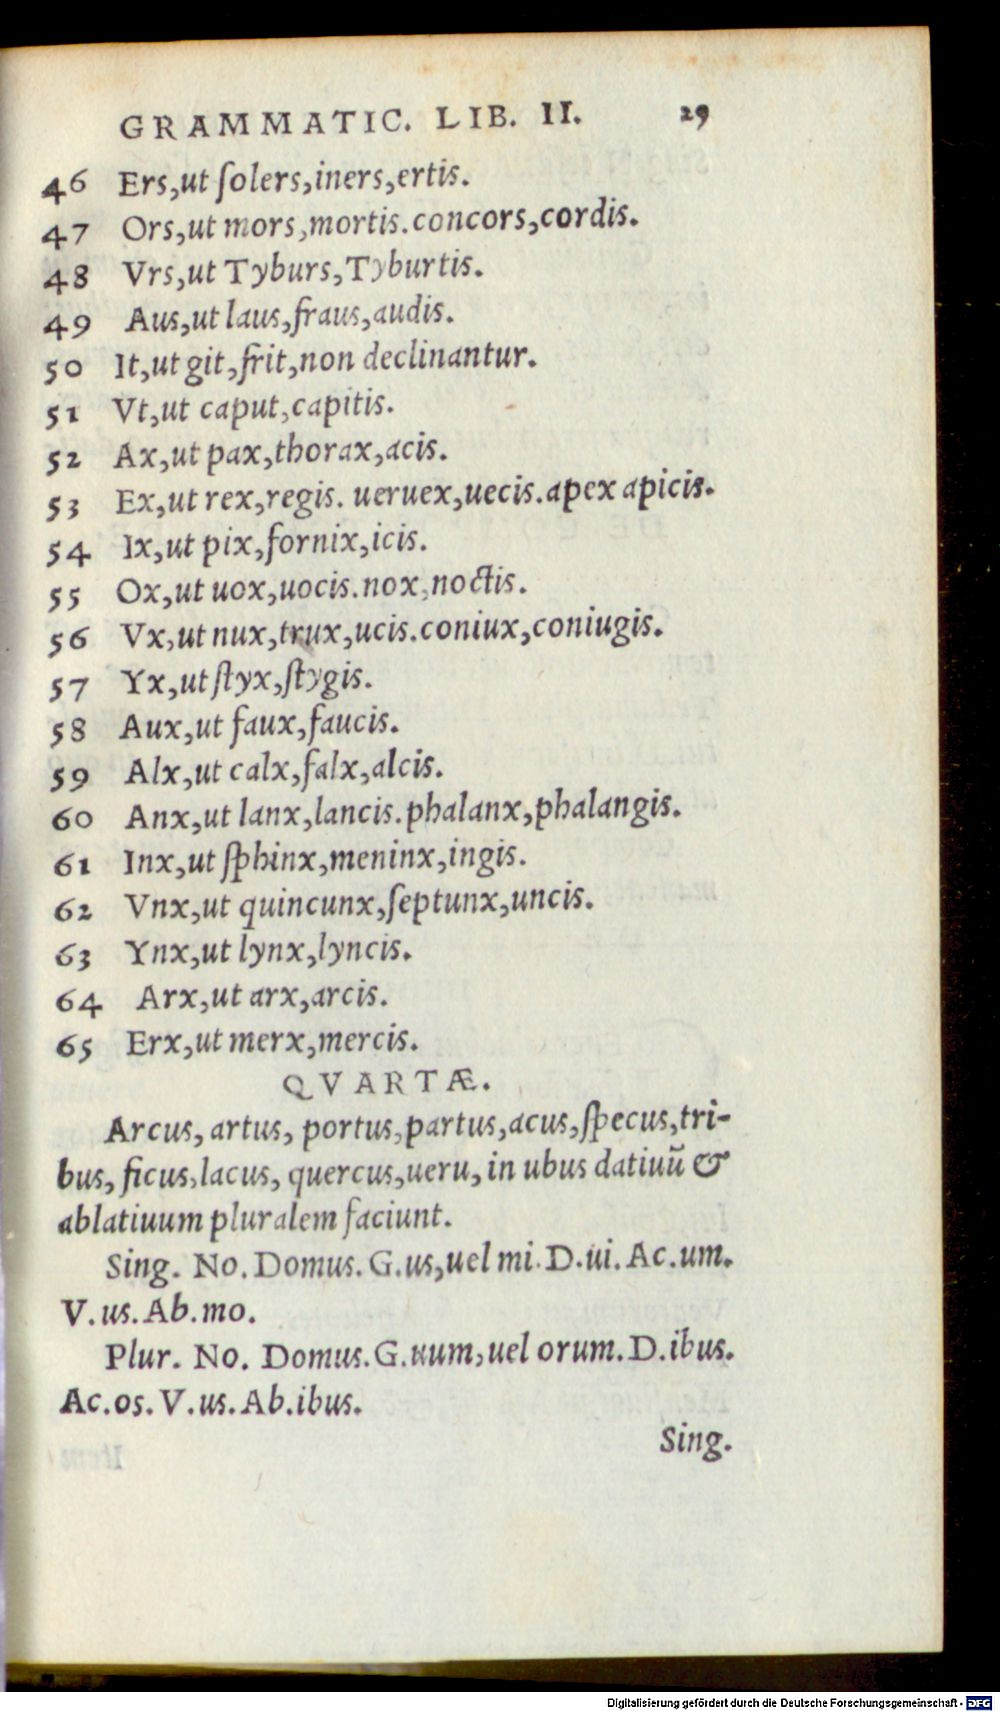 GRAMMATIC. LIB. II. 29
46 Ers,ut ſolers,iners,ertis.
47 Ors,ut mors,mortis.concors,cordis.
48 Vrs,ut Tyburs,Tyburtis.
49 Aus,ut laus,fraus,audis.
50 It,ut git,frit,non declinantur.
51 Vt,ut caput,capitis.
52 Ax,ut pax,thorax,acis.
53 Ex,ut rex,regis. ueruex,uecis.apex apicis.
54 Ix,ut pix,fornix,icis.
55 Ox,ut uox,uocis.nox,noctis.
56 Vx,ut nux,trux,ucis.coniux,coniugis.
57 Yx,ut ſtyx,ſtygis.
58 Aux,ut faux,faucis.
59 Alx,ut calx,falx,alcis.
60 Anx,ut lanx,lancis.phalanx,phalangis.
61 Inx,ut ſphinx,meninx,ingis.
62 Vnx,ut quincunx,ſeptunx,uncis.
63 Ynx,ut lynx,lyncis.
64 Arx,ut arx,arcis.
65 Erx,ut merx,mercis.
QVARTÆ.
Arcus, artus, portus,partus,acus,ſpecus,tri-
bus, ficus,lacus, quercus,ueru, in ubus datiuũ &
ablatiuum pluralem faciunt.
Sing. No. Domus. G.us,uel mi. D.ui. Ac.um.
V.us. Ab.mo.
Plur. No. Domus. G.uum,uel orum. D.ibus.
Ac.os. V.us. Ab.ibus.
Sing.
Digitalisierung gefördert durch die Deutsche Forschungsgemeinschaft - DFG